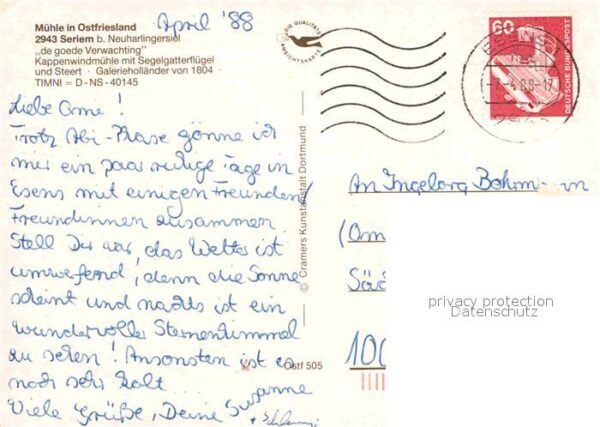 Mühle in Ostfriesland
2943 Seriem b. Neuharlingersiel
„de goede Verwachting"
Kappenwindmühle mit Segelgatterflügel
und Steert · Galerieholländer von 1804 ·
TIMNI = D - NS - 40145
April '88
DIE QUALITÄTS
ANSICHTSKARTE
60
DEUTSCHE BUNDESPOST
Liebe Ome!
Trotz Abi-Phase gönne ich
mir ein paar ruhige Tage in
Esens mit einigen Freunden/
Freundinnen zusammen.
Stell Dir vor, das Wetter ist
umwerfend, denn die Sonne
scheint und nachts ist ein
wundervoller Sternenhimmel
zu sehen! Ansonsten ist es
noch sehr kalt...
Viele Grüße, Deine Susanne
© Cramers Kunstanstalt Dortmund
Ostf 505
An Ingeborg
(Om
100
privacy protection
Datenschutz